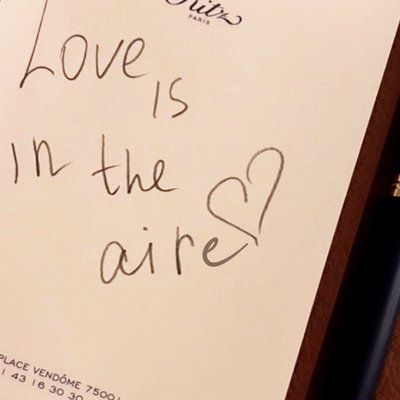 Ritz
PARIS
Love
is
in the
aire
PLACE VENDÔME 7500
1 43 16 30 30